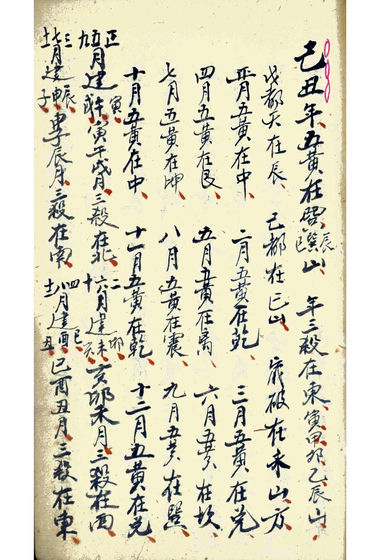 己丑年五黃在巽辰巽巳山 年三殺在東寅甲卯乙辰山
戊都天在辰 己都在巳山 歲破在未山方
正月五黃在中 二月五黃在乾 三月五黃在兑
四月五黃在艮 五月五黃在离 六月五黃在坎
七月五黃在坤 八月五黃在震 九月五黃在巽
十月五黃在中 十一月五黃在乾 十二月五黃在兑
正五九月建寅午戌 寅午戌月三殺在北 二六十月建卯未亥 亥卯未月三殺在西
三七十一月建辰申子 申子辰月三殺在南 四八十二月建巳酉丑 巳酉丑月三殺在東